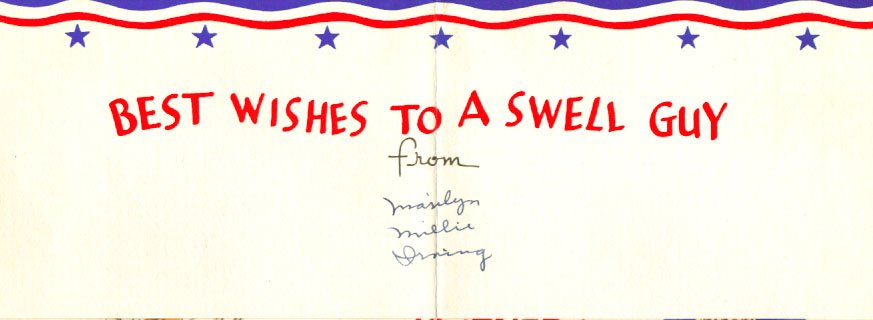 BEST WISHES TO A SWELL GUY
from
Marilyn
Millie
Irving